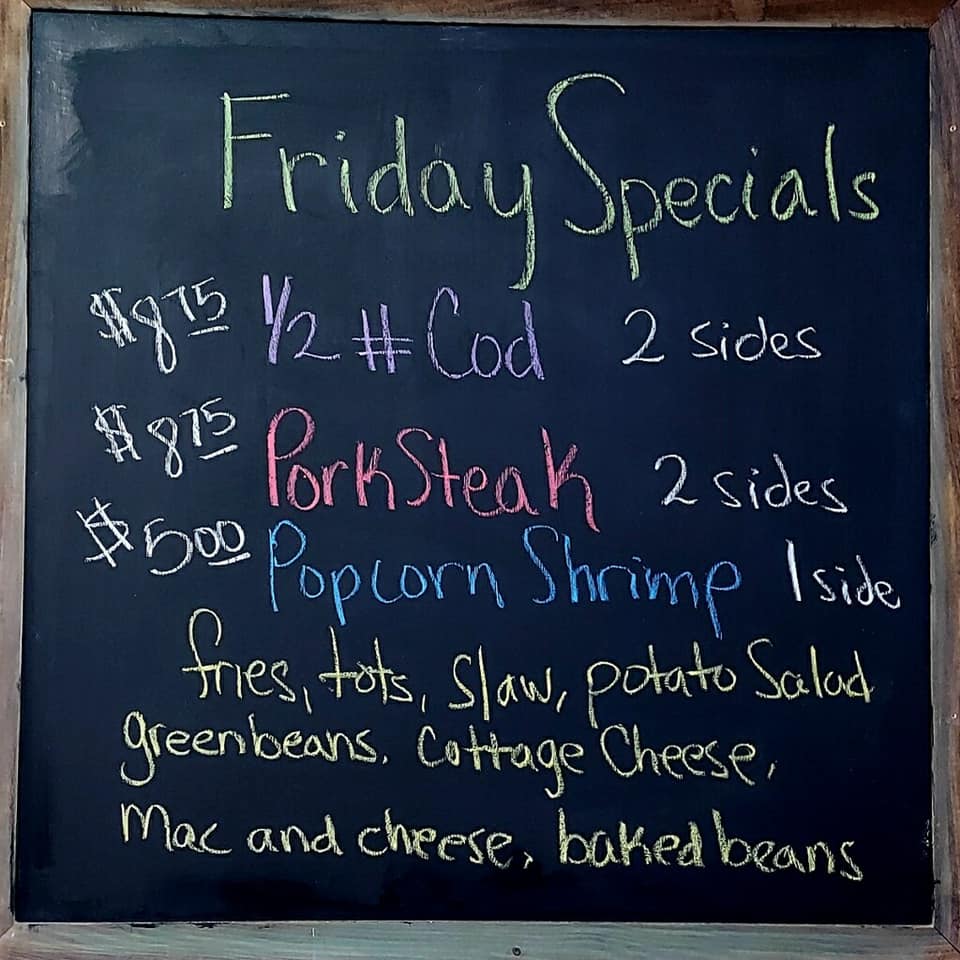 Friday Specials
$8.75 1/2 # Cod 2 sides
$8.75 Pork Steak 2 sides
$5.00 Popcorn Shrimp 1 side
fries, tots, slaw, potato Salad
greenbeans. Cottage Cheese,
Mac and cheese, baked beans